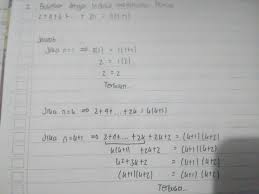 2. Buktikan dengan induksi matematika bahwa
2+4+6+...+2n = n(n+1)
Jawab
Jika n=1 ⇒ 2(1) = 1(1+1)
2 = 1(2)
2 = 2
Terbukti.
Jika n=k ⇒ 2+4+...+2k = k(k+1)
Jika n=k+1 ⇒ 2+4+...+2k+2k+2 = (k+1)(k+2)
k(k+1) + 2k+2 = (k+1)(k+2)
k²+3k+2 = (k+1)(k+2)
(k+1)(k+2) = (k+1)(k+2)
Terbukti.